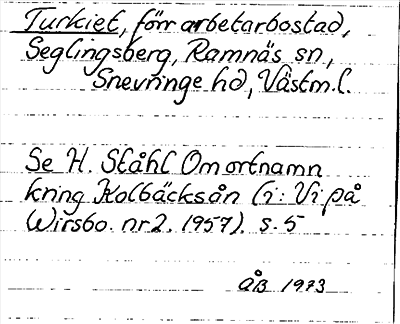 Turkiet, förr arbetarbostad,
Seglingsberg, Ramnäs sn,
Snevringe hd, Västm.l.
Se H. Ståhl Om ortnamn
kring Kolbäcksån (i: Vi på
Wirsbo. nr 2. 1957). s. 5
ÅB 1973